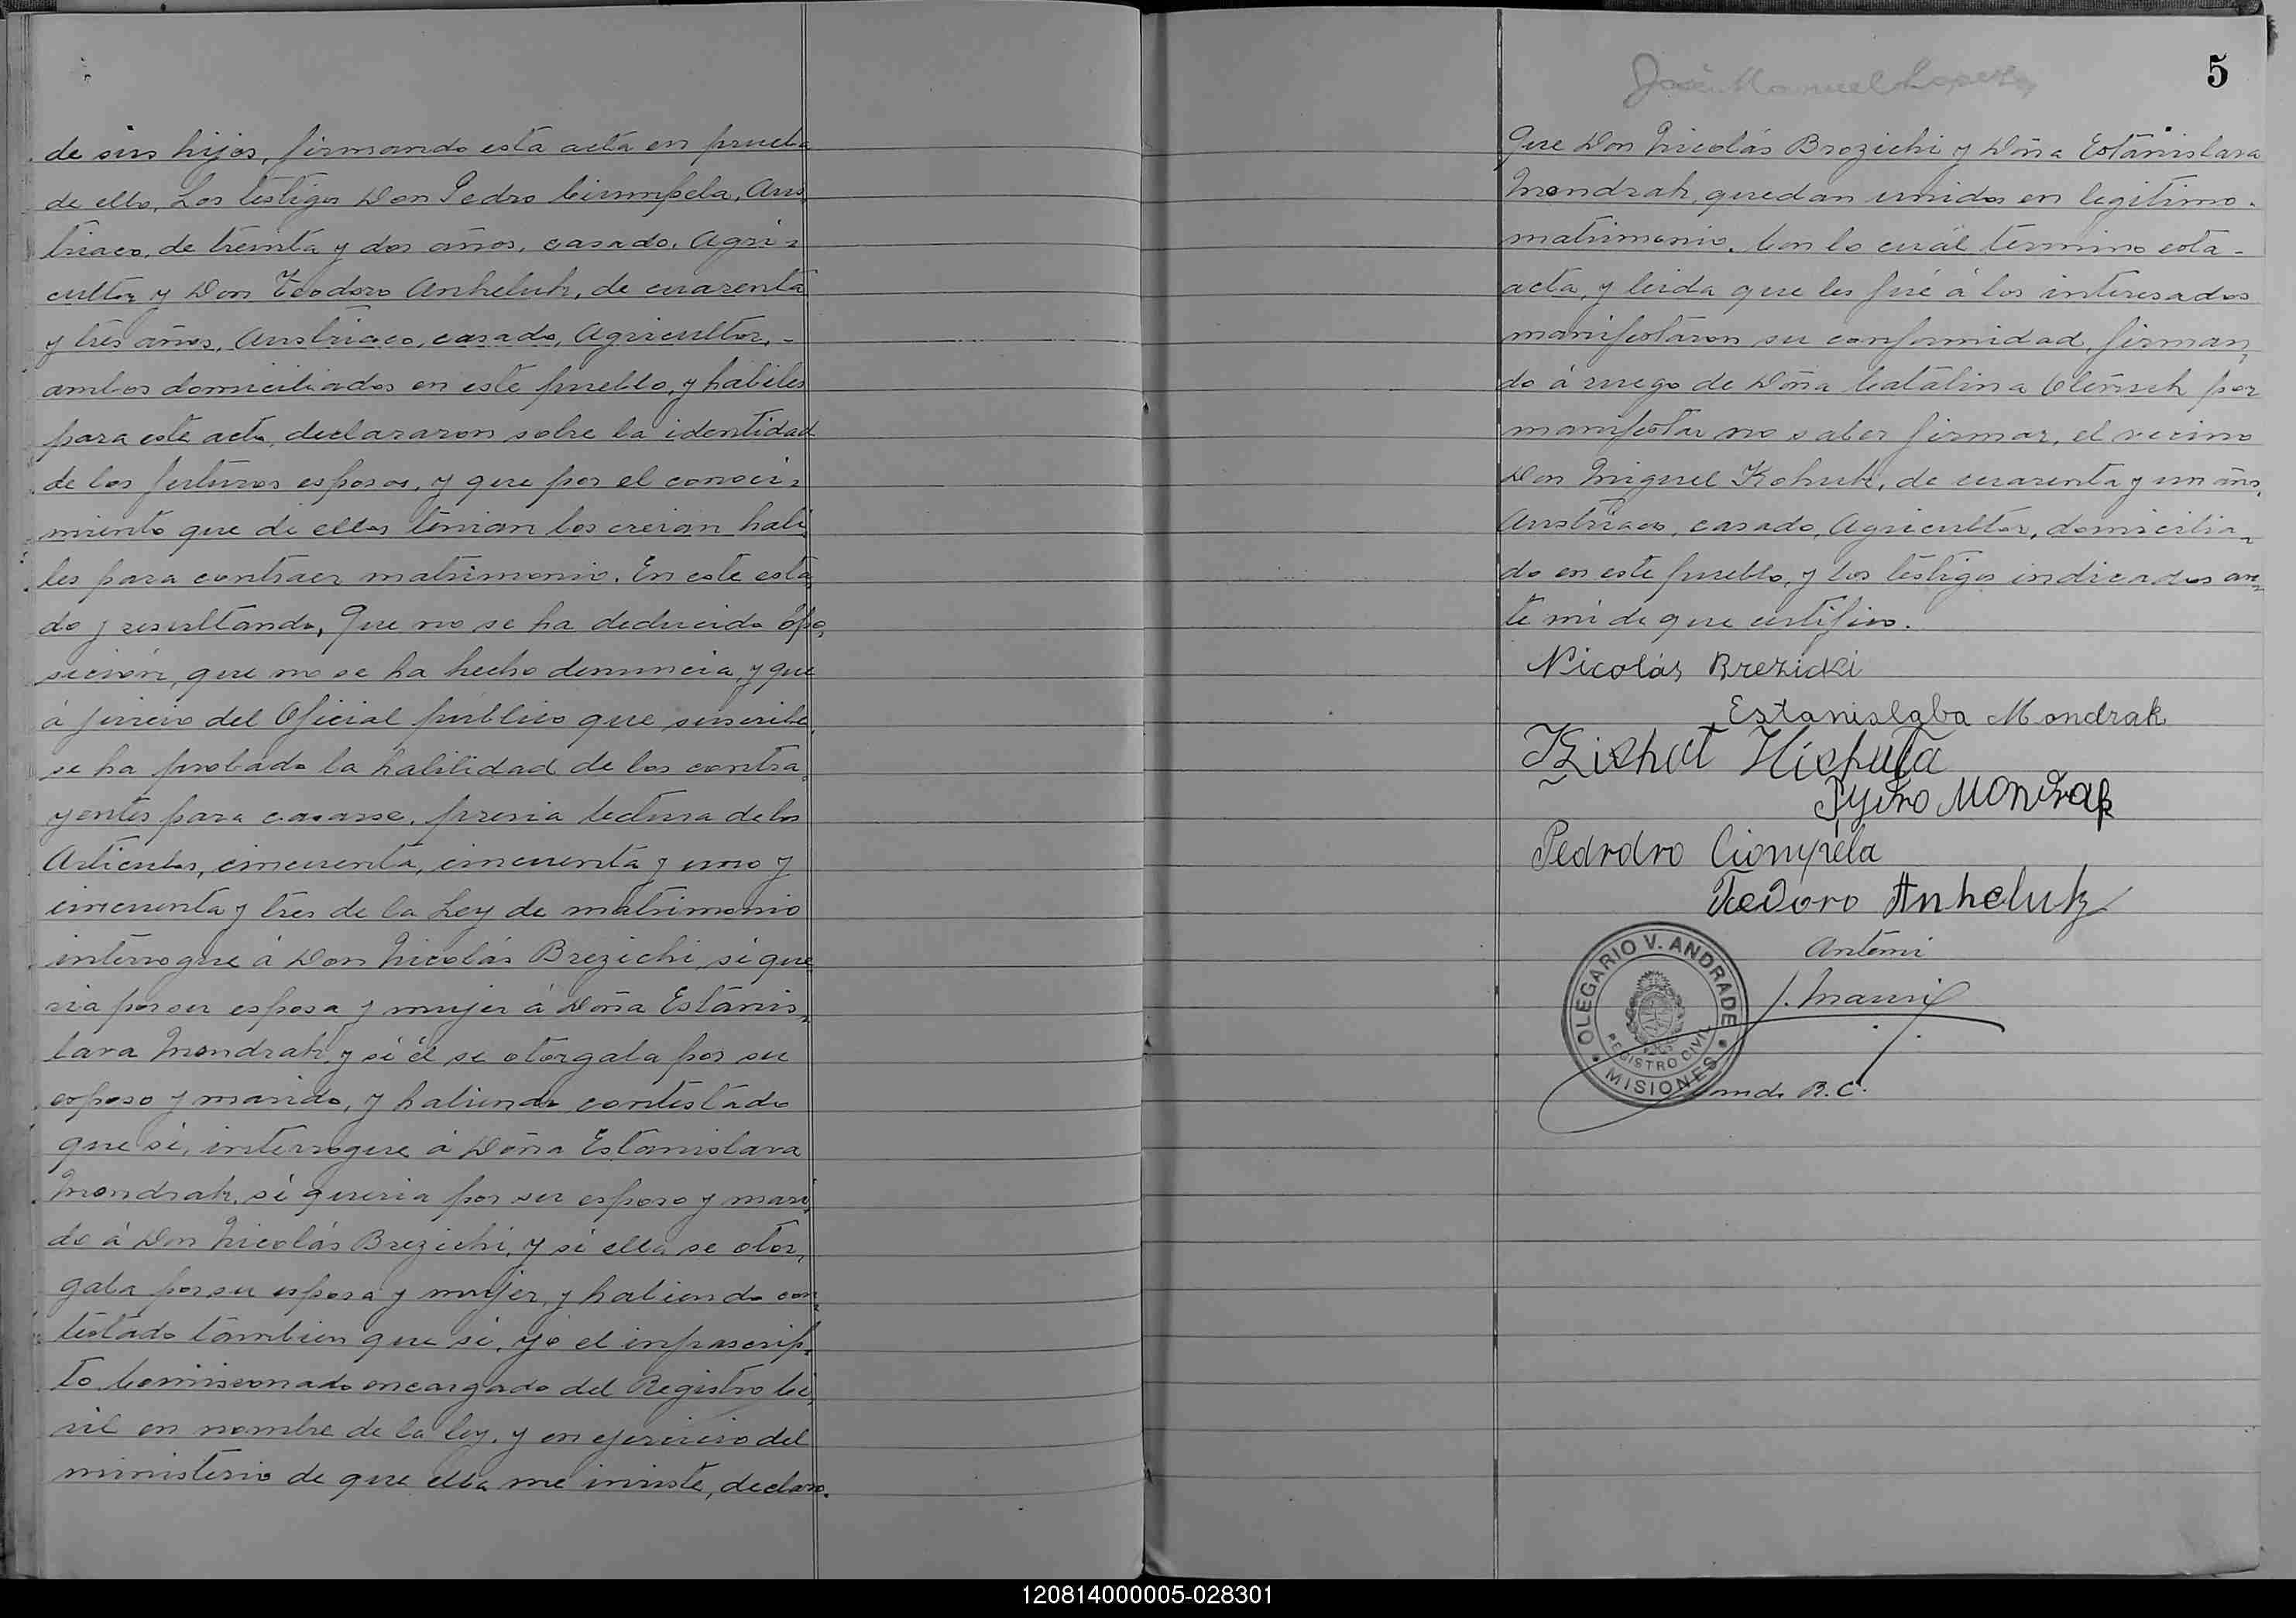 de sus hijos, firmando esta acta en prueba
de ello. Los testigos Don Pedro Ciumpela, Aus,
triaco, de treinta y dos años, casado, Agri=
cultor y Don Teodoro Anheluk, de cuarenta
y tres años, Austriaco, casado, Agricultor, -
ambos domiciliados en este pueblo, y habiles
para este acto, declararon sobre la identidad
de los futuros esposos, y que por el conoci=
miento que de ellos tenian los creian habi,
les para contraer matrimonio. En este esta,
do y resultando, Que no se ha deducido opo,
sición, que no se ha hecho denuncia, y que
á juicio del Oficial público que suscribe,
se ha probado la habilidad de los contra,
yentes para casarse, previa lectura de los
Articulos, cincuenta, cincuenta y uno y
cincuenta y tres de la Ley de matrimonio
interrogue á Don Nicolás Brezichi, si que
ria por su esposa y mujer á Doña Estanis,
lava Mondrak, y si él se otorgaba por su
esposo y marido, y habiendo contestado
que si, interrogue á Doña Estanislava
Mondrak, si queria por su esposo y mari,
do á Don Nicolás Brezichi, y si ella se otor,
gaba por su esposa y mujer, y habiendo con,
testado tambien que si, yo el infrascrip,
to Comisionado encargado del Registro Ci,
vil en nombre de la ley, y en ejercicio del
ministerio de que ella me inviste, declaro.
José Manuel Lopez
5
Que Don Nicolás Brozichi y Doña Estanislava
Mondrak, quedan unidos en legitimo.
matrimonio. Con lo cuál termino esta -
acta, y leida que les fué á los interesados
manifestaron su conformidad, firman,
do á ruego de Doña Catalina Oleñuch por
manifestar no saber firmar, el vecino
Don Miguel Kohut, de cuarenta y un años,
Austriaco, casado, Agricultor, domicilia,
do en este pueblo, y los testigos indicados an,
te mi de que certifico.
Nicolás Brezicki
Estanislaba Mondrak
Mondrak
Pedrdro Ciompela
Teodoro Anheluk
Antemi
J.
OLEGARIO V. ANDRADE
REGISTRO CIVIL
MISIONES
R. C.
120814000005-028301